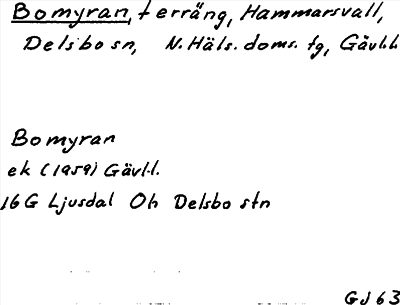 Bomyran, terräng, Hammarsvall,
Delsbo sn, N. Häls. doms. tg, Gävl.l.
Bomyran
ek (1959) Gävl.l.
16 G Ljusdal Oh Delsbo stn
GJ 63